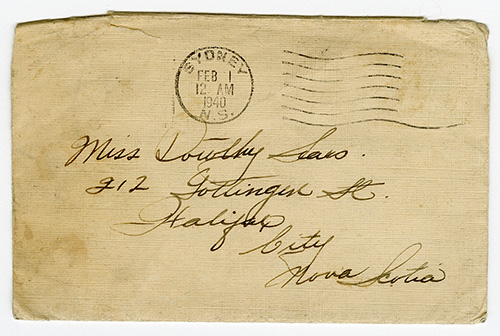 SYDNEY
FEB 1
12 AM
1940
N.S.
Miss Dorothy Sears.
212 Gottingen St.
Halifax
City
Nova Scotia